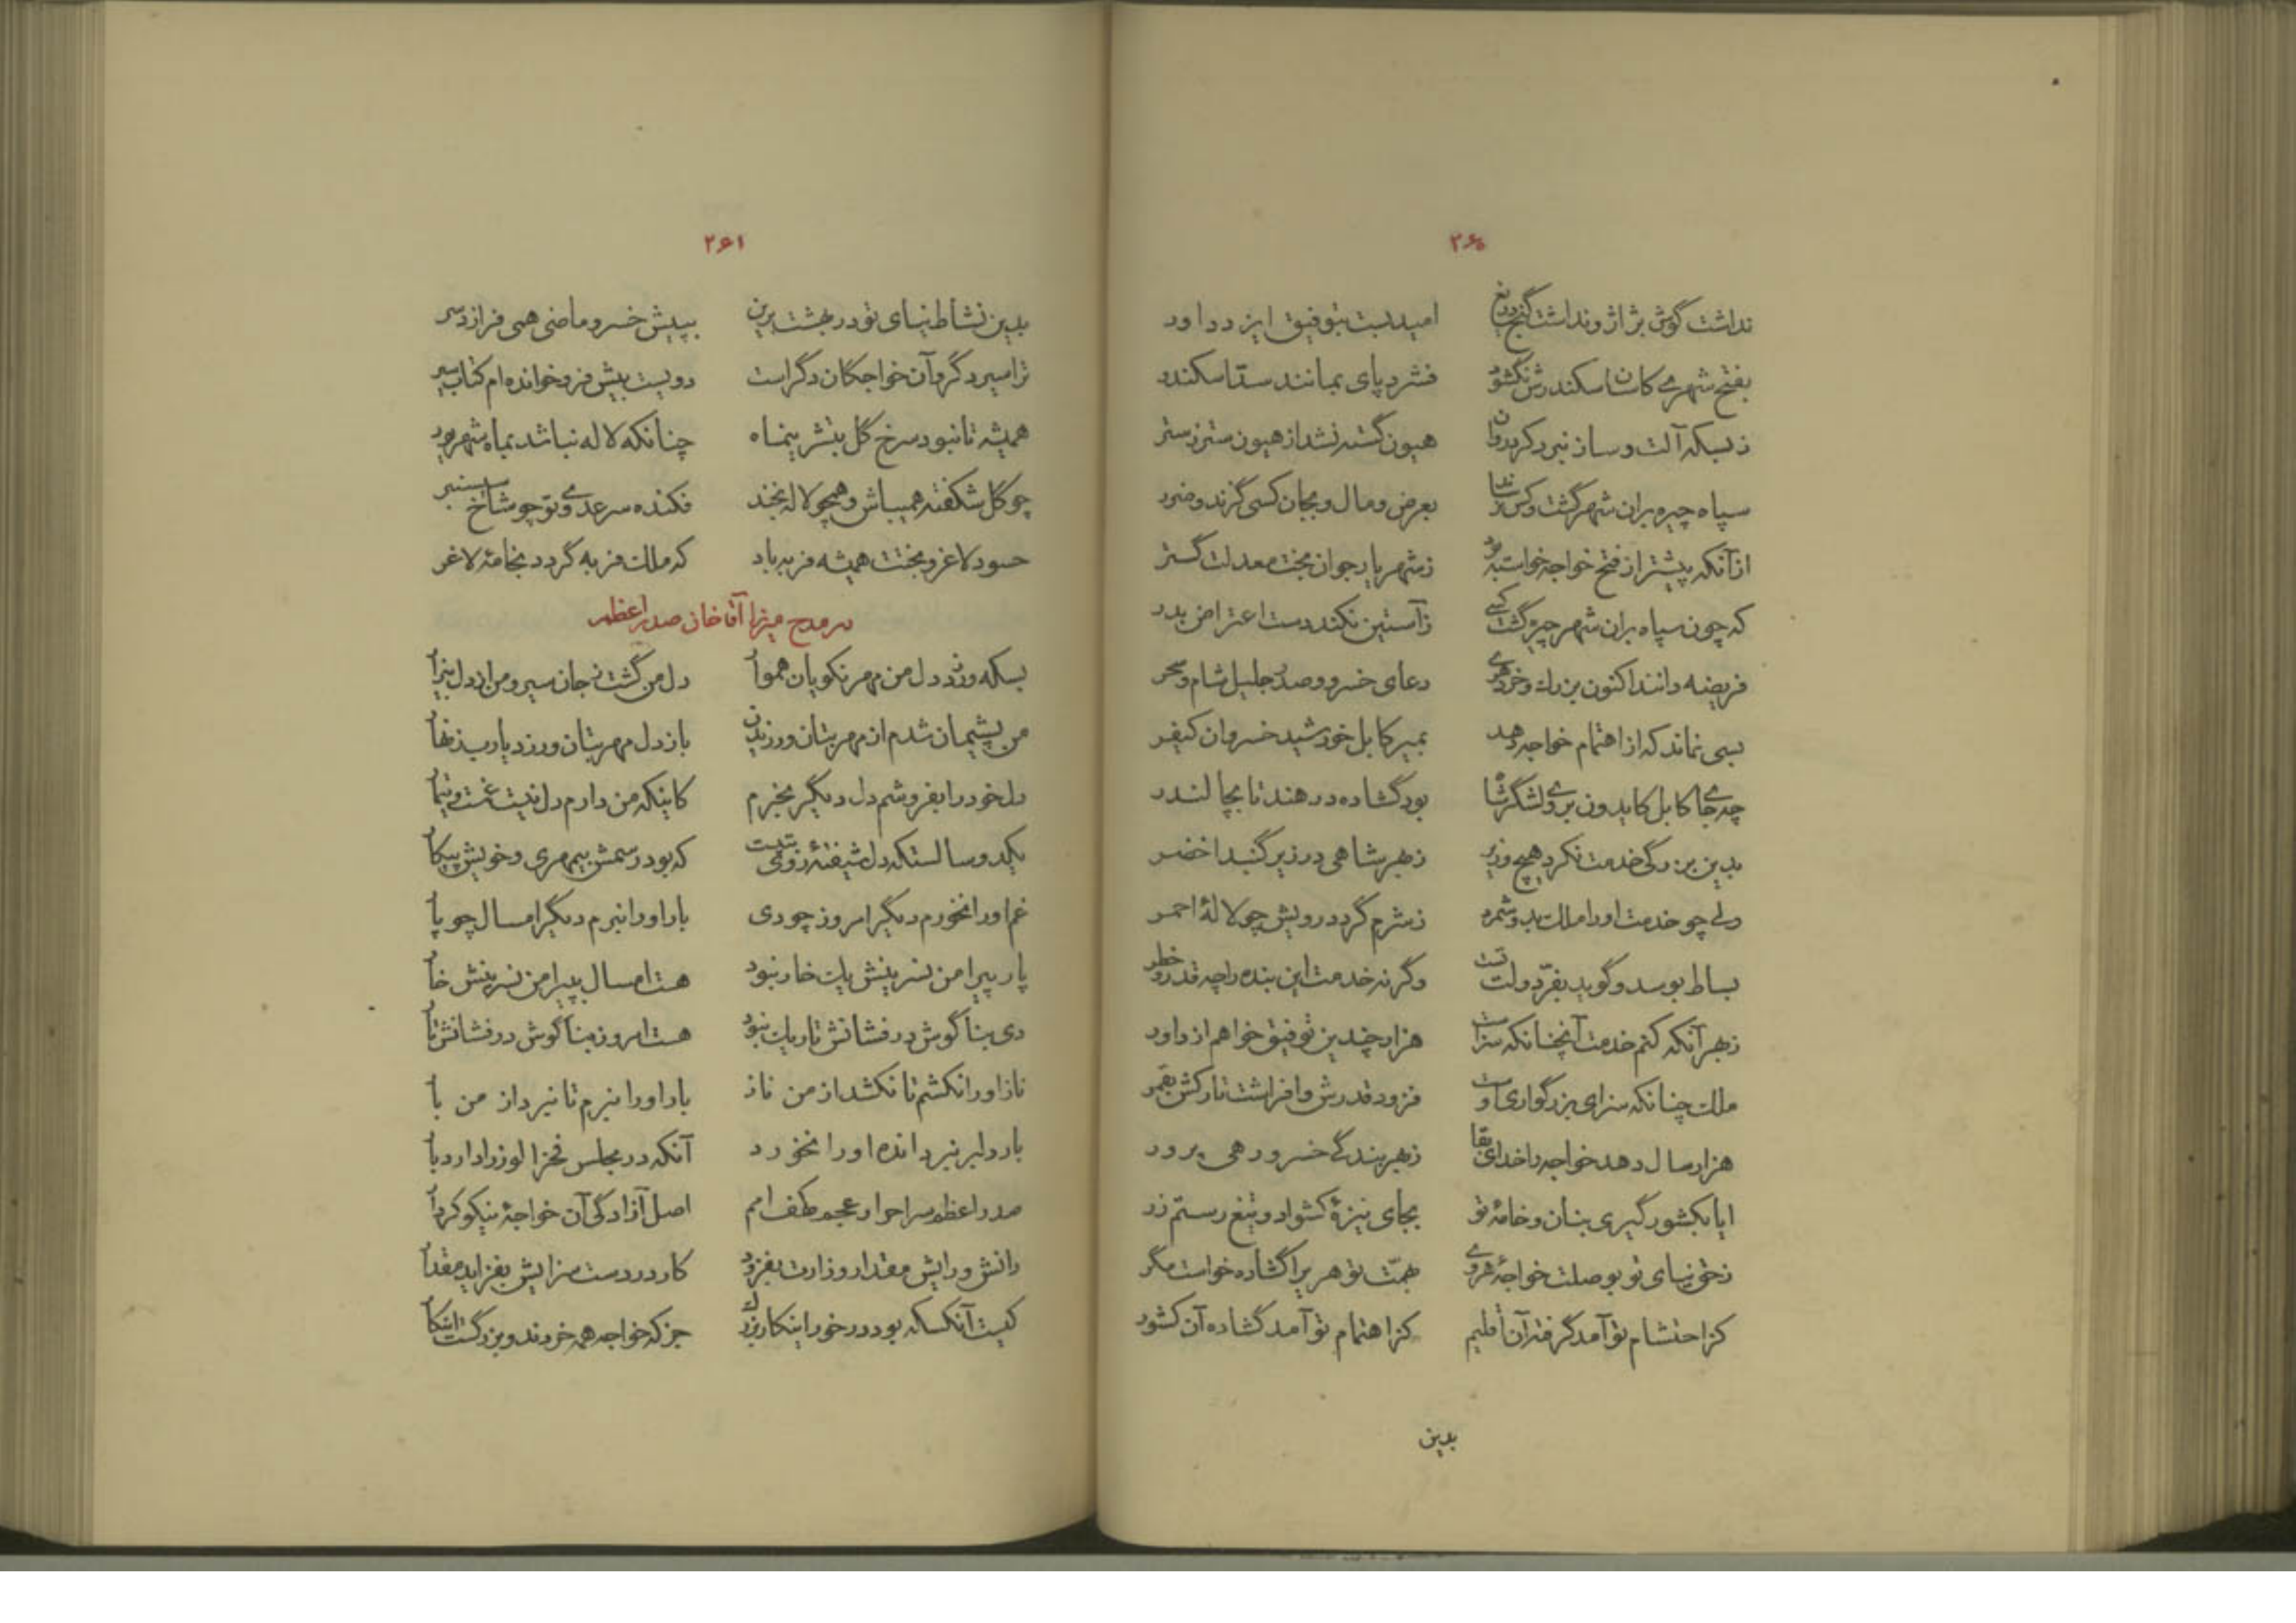 ۲۶۰
نداشت گوش بژاژ و نداشت گنج دریغ امیدبست بتوفیق ایزد داور
بفتح شهری کانرا سکندرش نگشود فشرد پای بمانند سد اسکندر
زبسکه آلت و ساز نبرد کرد روان هیون گسته نشد از هیون ستر ز ستر
سپاه چیره بران شهر گشت و کس نرساند بعرض و مال و بجان کسی گزند و ضرر
از آنکه پیشتر از فتح خواجه خواسته بود ز شهریار جوان بخت معدلت گستر
که چون سپاه بران شهر چیره گشت کسی ز آستین نکند دست اعتراض بدر
فریضه دانند اکنون بزرگ و خرد هری دعای خسرو و صدر جلیل شام و سحر
بسی نماند که از اهتمام خواجه دهد بمیر کابل خورشید خسروان کیفر
چه جای کابل کایدون بروی لشگر شاه بود گشاده در هند تا بجالندر
بدین بزرگی خدمت نکرد هیچ وزیر ز بهر شاهی در زیر گنبد اخضر
ولی چو خدمت او را ملک بدو شمرد ز شرم گردد رویش چو لالهٔ احمر
بساط بوسد و گوید بفرّ دولت تست وگرنه خدمت این بنده را چه قدر و خطر
ز بهر آنکه کنم خدمت آنچنانکه سزاست هزار چندین توفیق خواهم از داور
ملک چنانکه سزای بزرگواری اوست فزود قدرش و افراشت تارکش بقمر
هزار سال دهد خواجه را خدای بقا ز بهر بندگی خسرو رهی پرور
ایا بکشور گیری بنان و خامهٔ تو بجای نیزهٔ کشواد و تیغ رستم زر
نیای تو بوصلت خواجهٔ هروی همّت تو هری را گشاده خواست مگر
کز احتشام تو آمد گرفته آن اقلیم کز اهتمام تو آمد گشاده آن کشور
بدین
۲۶۱
بدین نشاط نیای تو در بهشت برین بپیش خسرو ماضی همی فرازد سر
ترا سیر دگر و آن خواجگان دگر است دویست بیش فرو خوانده‌ام کتاب سیر
همیشه تا نبود سرخ گل بتشرینماه چنانکه لاله نباشد بماه شهریور
چو گل شکفته همیباش و همچو لاله بخند فکنده سر عدوی تو چو شاخ سیسنبر
حسود لاغر و بختت همیشه فربه باد که ملک فربه گردد بخامهٔ لاغر
در مدح میرزا آقا خان صدر اعظم
بسکه ورزد دل من مهر نکویان هموار دل من گشت ز جان سیر و من از دل بیزار
من پشیمان شدم از مهر بتان ورزیدن باز دل مهر بتان ورزد یارب زنهار
دل خود را بفروشم دل دیگر بخرم کاینکه من دارم دل نیست غمست و تیمار
یکدو سالستکه دل شیفتهٔ زوئی تست که بود رسمش بیمهری و خویش پیکار
غم او را نخورم دیگر امروز چو دی بار او را نبرم دیگر امسال چو پار
پار پیرامن نسرینش یک خار نبود هست امسال بپیرامن نسرینش خار
دی بناگوش درفشانش تاریک نبود هست امروز بناگوش درفشانش تار
ناز او را نکشم تا نکشد از من ناز بار او را نبرم تا نبرد از من بار
بار دلبر نبرد انده او را نخورد آنکه در مجلس فخر الوزرا دارد بار
صدر اعظم سر احرار عجم کهف امم اصل آزادگی آن خواجهٔ نیکو کردار
دانش و رایش مقدار وزارت بفزود کار در دست سزایش بفزاید مقدار
کیست آنکسکه بود در خور اینکار بزرگ جز که خواجه همه خردند و بزرگست اینکار